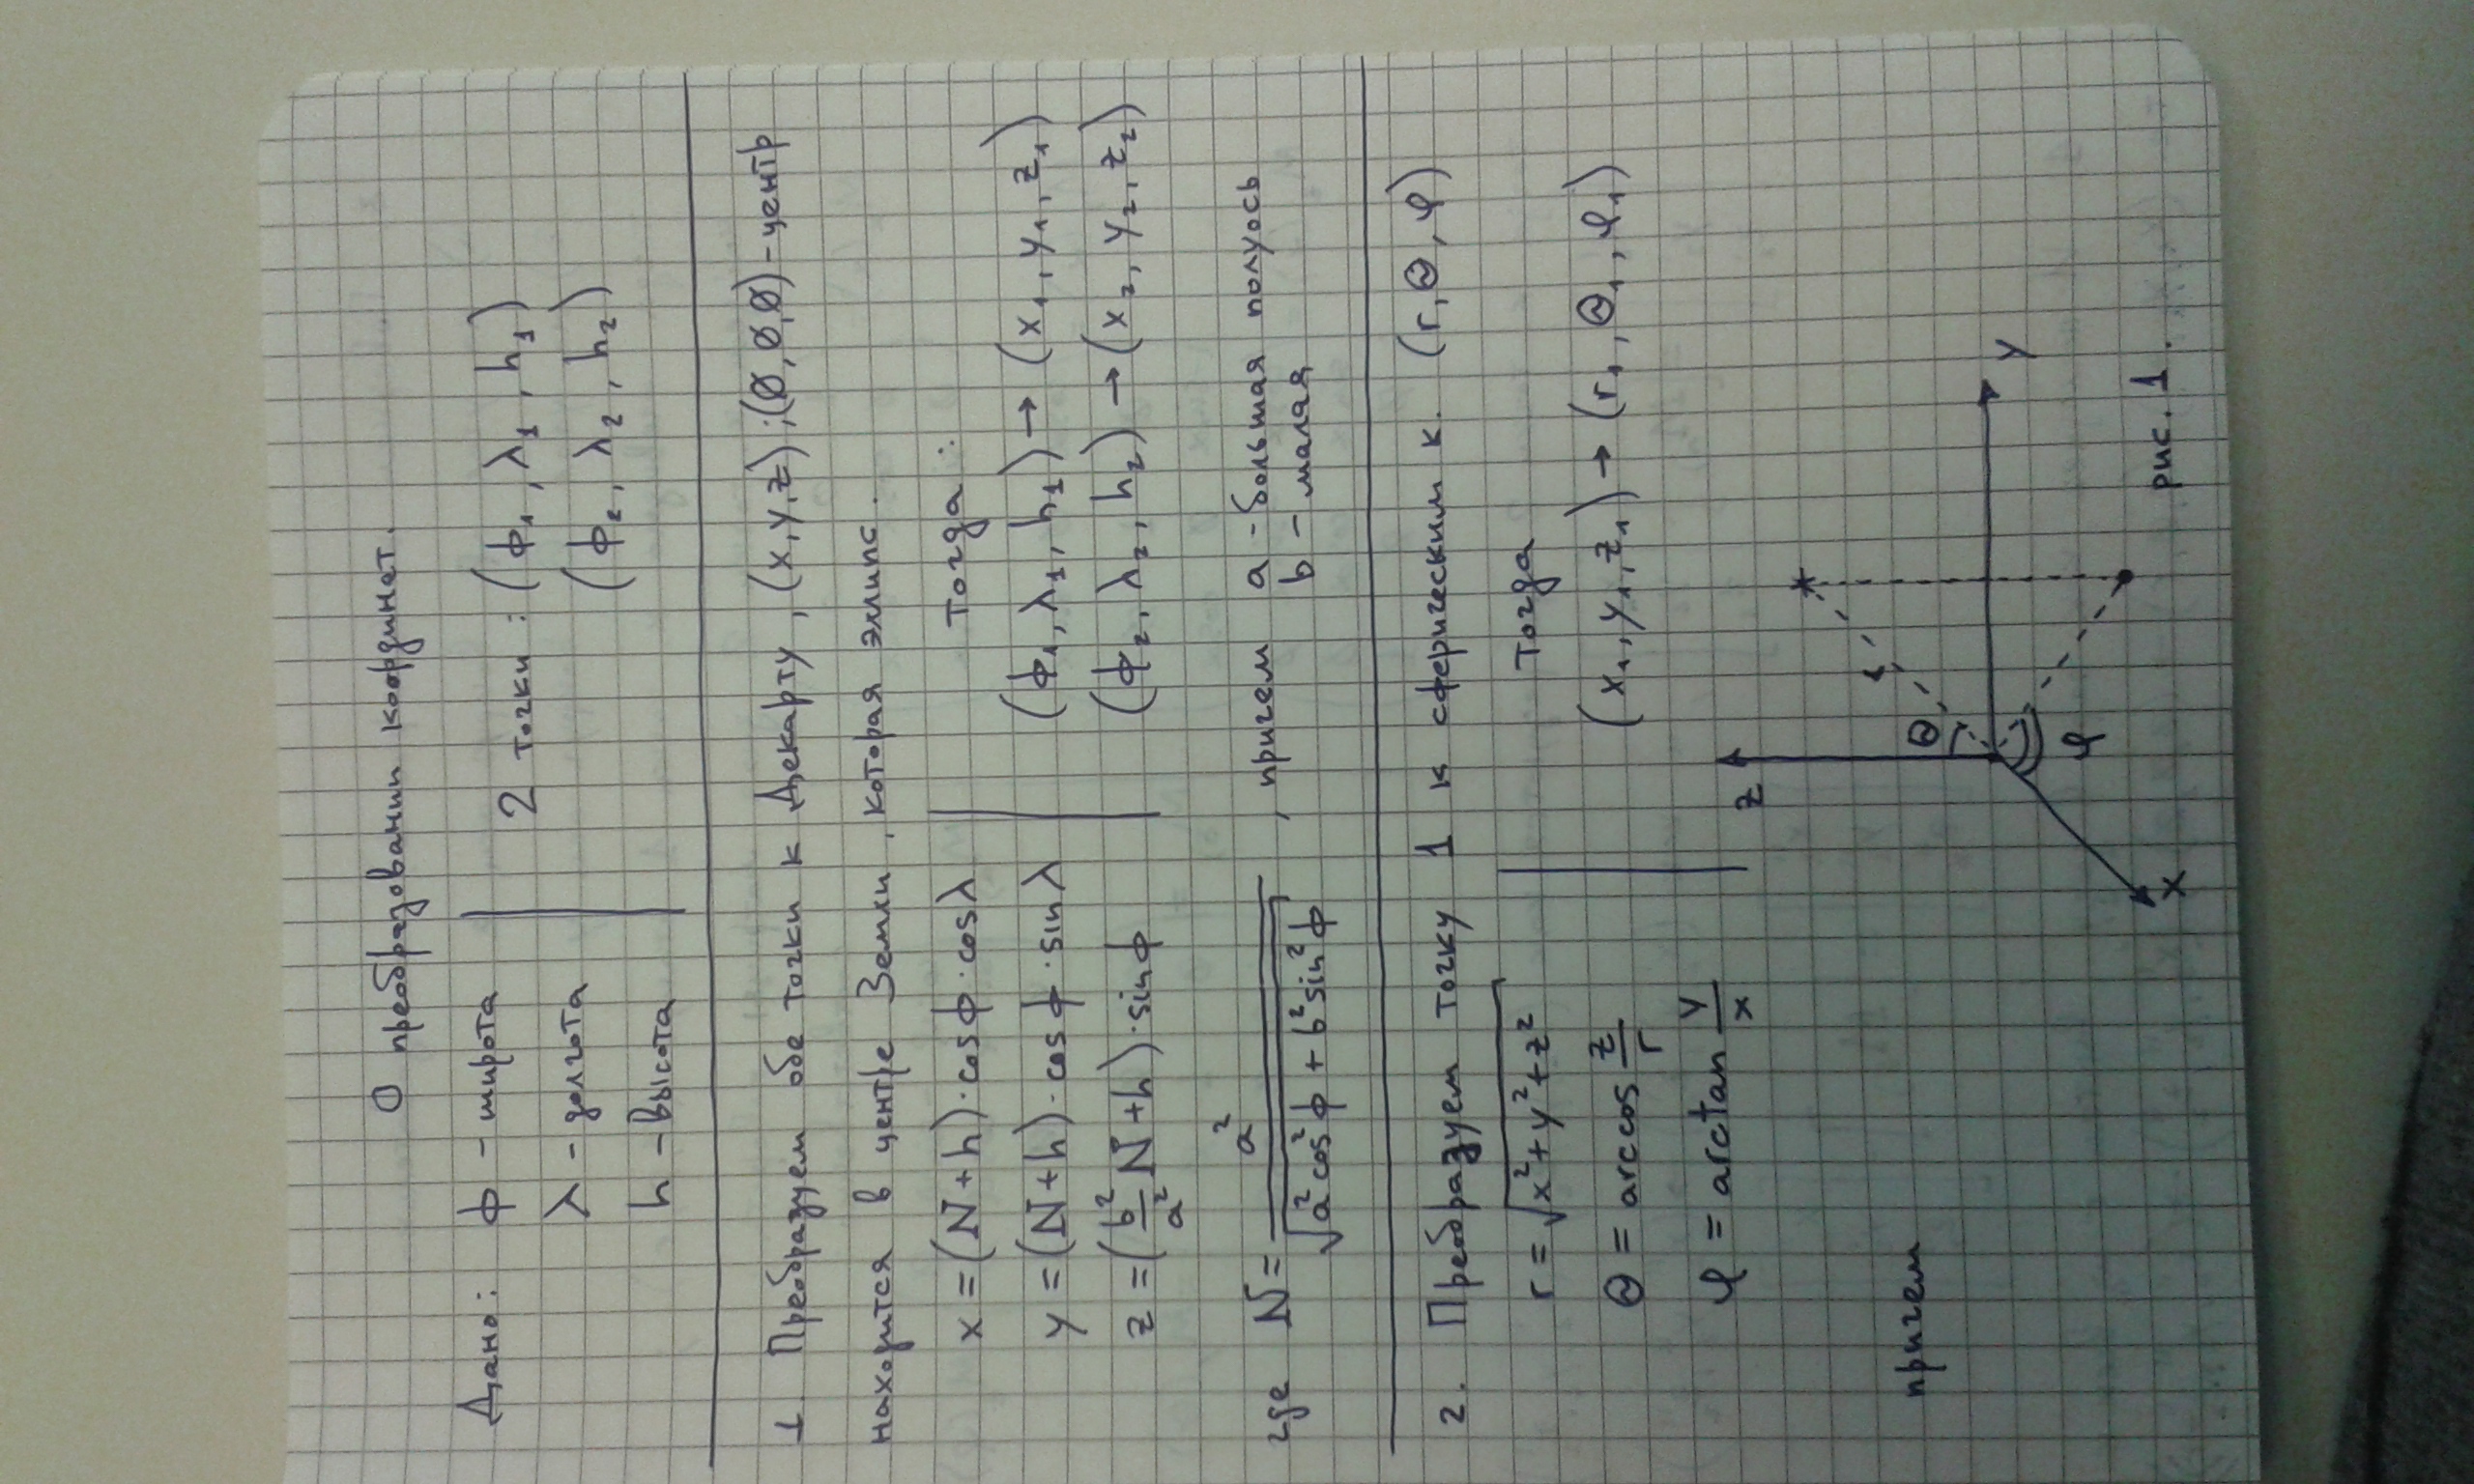 О преобразовании координат.
Дано: ф - широта
λ - долгота
h - высота
2 точки: (ф₁, λ₁, h₁)
(ф₂, λ₂, h₂)
1. Преобразуем обе точки к Декарту, (x, y, z); (0, 0, 0) - центр
находится в центре Земли, которая элипс.
x = (N + h) · cos ф · cos λ
y = (N + h) · cos ф · sin λ
z = (b²/a² N + h) · sin ф
Тогда:
(ф₁, λ₁, h₁) → (x₁, y₁, z₁)
(ф₂, λ₂, h₂) → (x₂, y₂, z₂)
где N = a² / √(a² cos² ф + b² sin² ф), причем a - большая полуось
b - малая
2. Преобразуем точку 1 к сферическим к. (r, Θ, φ)
r = √(x² + y² + z²)
Θ = arccos z/r
φ = arctan y/x
Тогда
(x₁, y₁, z₁) → (r₁, Θ₁, φ₁)
причем
z
Θ
r
y
φ
x
рис. 1.